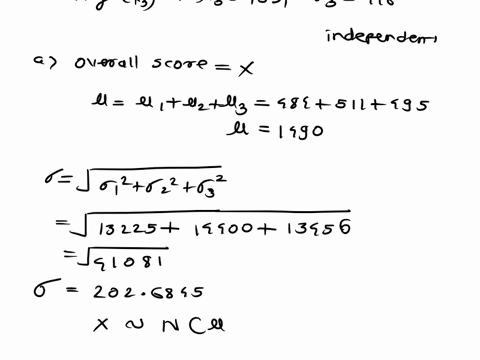 independent
a) overall score = X
μ = μ1 + μ2 + μ3 = 484 + 511 + 495
μ = 1490
σ = √σ1² + σ2² + σ3²
= √13225 + 14400 + 13456
= √41081
σ = 202.6845
X ~ N(μ